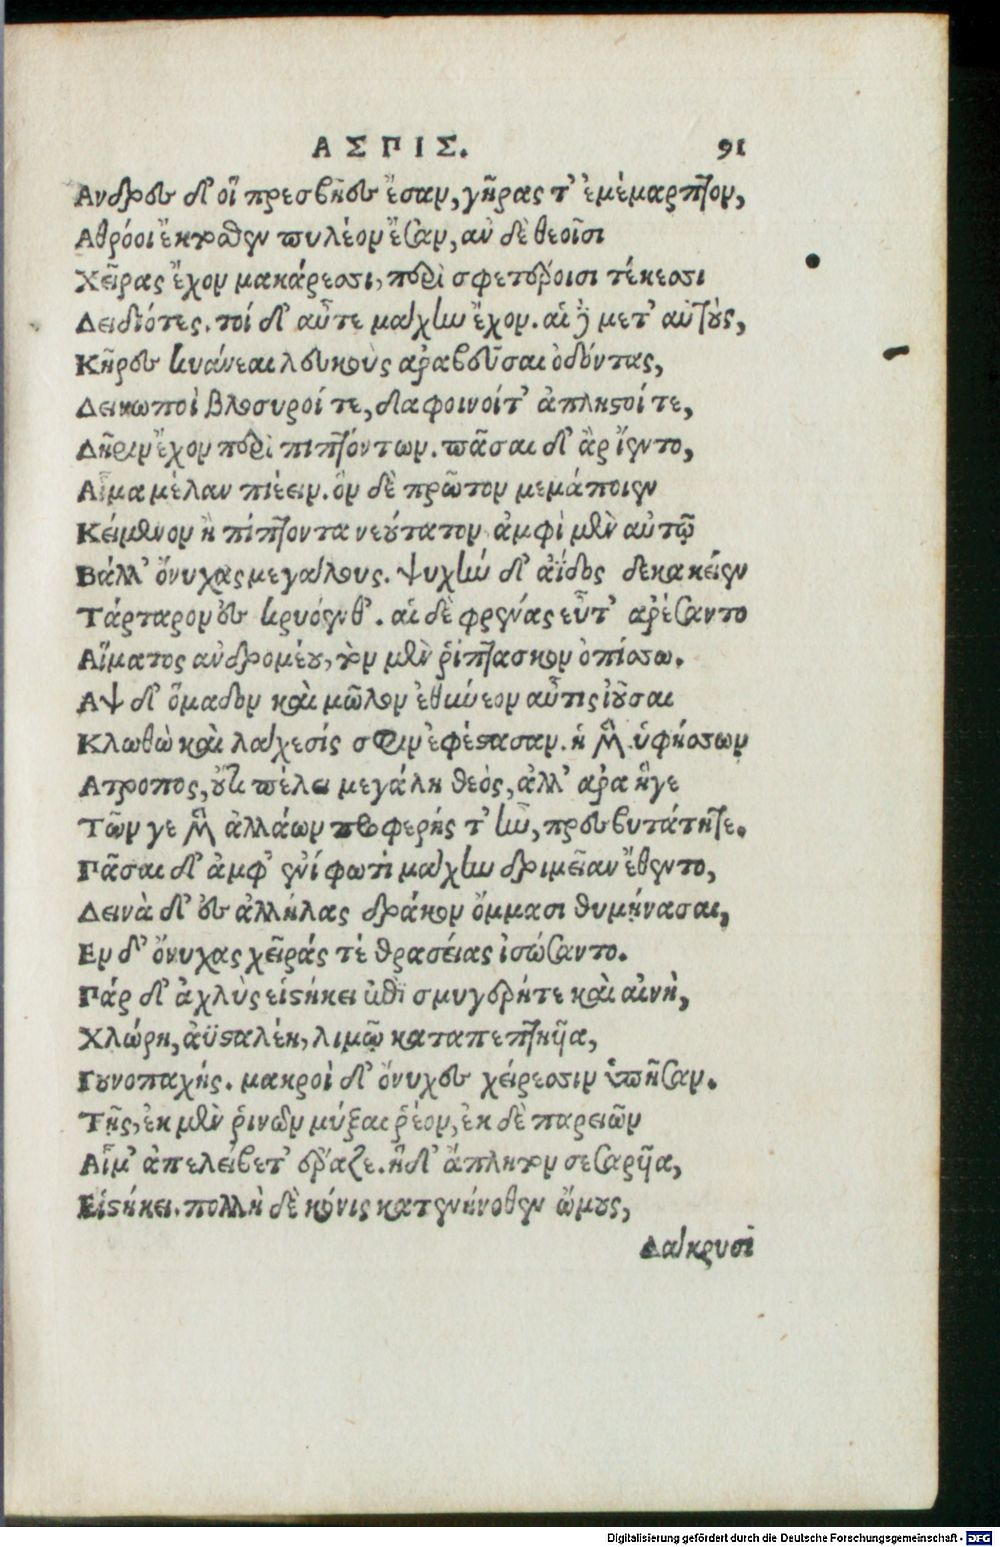 ΑΣΠΙΣ. 91
Ανδρες δ' οἳ πρεσβῆες ἔσαν, γῆρας τ' ἐμέμαρπτον,
Αθρόοι ἔκτοθεν πυλέον ἔσαν, ἀν δὲ θεοῖσι
Χεῖρας ἔχον μακάρεσσι, περὶ σφετέροισι τέκεσσι
Δειδιότες. τοί δ' αὖτε μάχην ἔχον. αἱ δὲ μετ' αὐτοὺς,
Κῆρες κυάνεαι λευκοὺς ἀραβεῦσαι ὀδόντας,
Δεινωποὶ βλοσυροί τε, δαφοινοίτ' ἀπληστοί τε,
Δῆριν ἔχον περὶ πιπτόντων. πᾶσαι δ' ἂρ ἵεντο,
Αἷμα μέλαν πιέειν. ὃν δὲ πρῶτον μεμάποιεν
Κείμενον ἢ πίπτοντα νεούτατον ἀμφὶ μὲν αὐτῷ
Βάλλ' ὄνυχας μεγάλους. ψυχὴν δ' ἀΐδος δεκακείεν
Τάρταρον ἐς κρυόενθ'. αἱ δὲ φρένας εὖτ' ἀρέσαντο
Αἵματος ἀνδρομέου, τὸν μὲν ῥίπτασκον ὀπίσσω.
Αψ δ' ὅμαδον καὶ μῶλον ἐθύνεον αὖτις ἰοῦσαι
Κλωθὼ καὶ λάχεσίς σφιν ἐφέστασαν. ἡ μὲν ὑφήσσων
Ατροπος, οὔτι πέλεν μεγάλη θεὸς, ἀλλ' ἀρα ἥγε
Τῶν γε μὲν ἀλλάων προφερής τ' ἦν, πρεσβυτάτητε.
Πᾶσαι δ' ἀμφ' ἑνί φωτὶ μάχην δριμεῖαν ἔθεντο,
Δεινὰ δ' ἐς ἀλλήλας δράκον ὄμμασι θυμήνασαι,
Εν δ' ὄνυχας χεῖράς τὲ θρασείας ἰσώσαντο.
Πάρ δ' ἀχλὺς εἱστήκει ἐπὶ σμυγερήτε καὶ αἰνὴ,
Χλώρη, ἀϋσταλέη, λιμῷ καταπεπτηῖα,
Γουνοπαχής. μακροὶ δ' ὄνυχες χείρεσσιν ὑπῆσαν.
Τῆς, ἐκ μὲν ῥινῶν μύξαι ῥέον, ἐκ δὲ παρειῶν
Αἷμ' ἀπελείβετ' ἔραζε. ἡ δ' ἄπλητον σεσαρῆα,
Εἱστήκει. πολλὴ δὲ κόνις κατενήνοθεν ὤμους,
Δάκρυσι
Digitalisierung gefördert durch die Deutsche Forschungsgemeinschaft - DFG